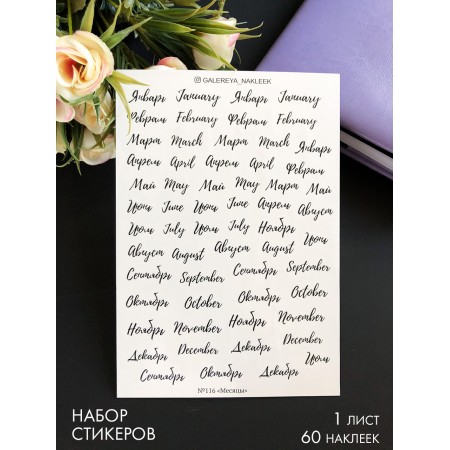 GALEREYA_NAKLEEK
Январь January Январь January
Февраль February Февраль February
Март March Март March Январь
Апрель April Апрель April Февраль
Май May Май May Март Май
Июнь June Июнь June Апрель Август
Июль July Июль July Ноябрь Июнь
Август August Август August
Сентябрь September Сентябрь September
Октябрь October Октябрь October
Ноябрь November Ноябрь November
Декабрь December Декабрь December Июль
Сентябрь Октябрь Декабрь
№116 «Месяцы»
НАБОР
СТИКЕРОВ
1 ЛИСТ
60 НАКЛЕЕК